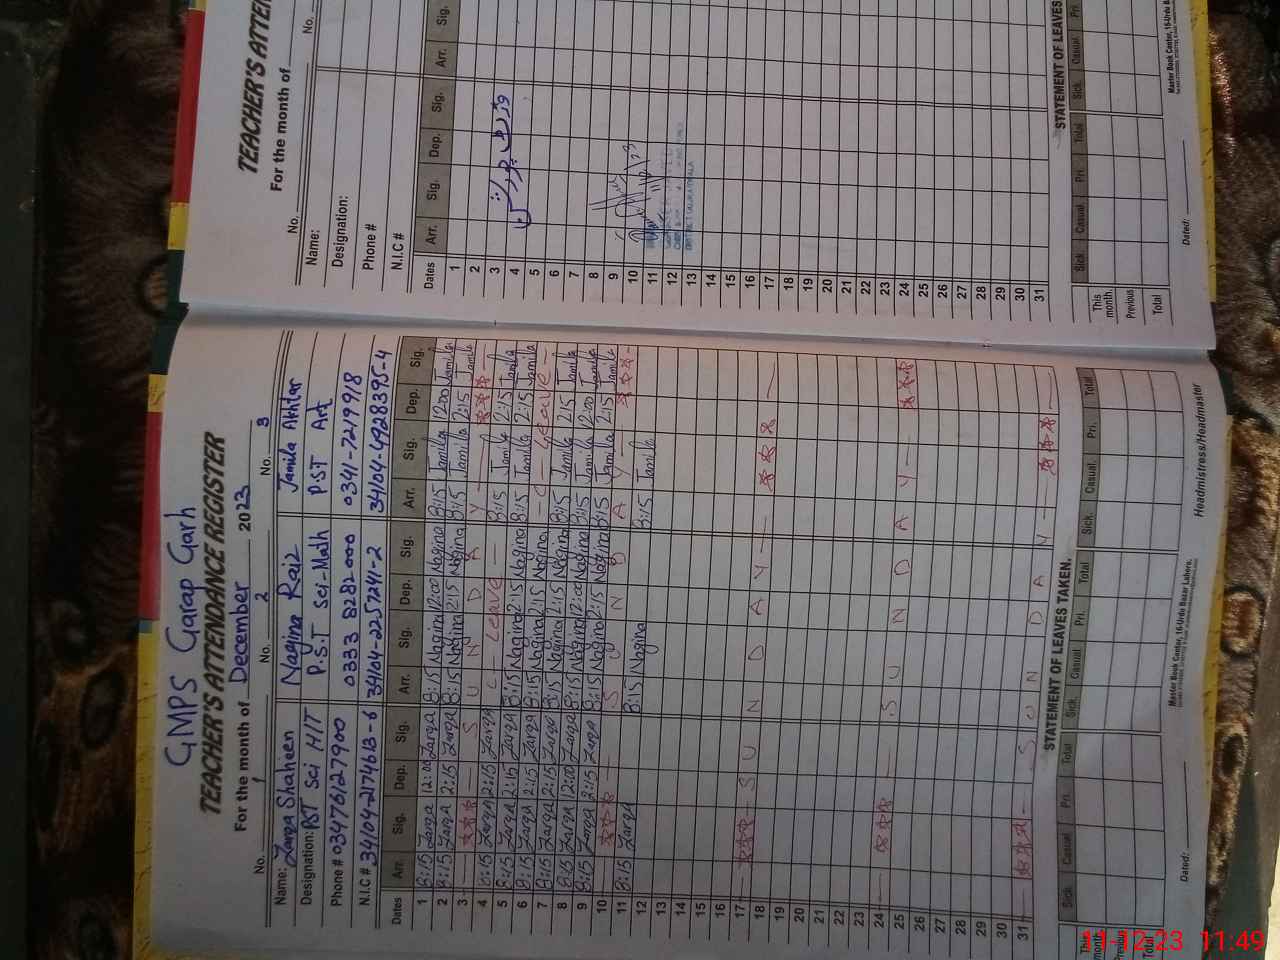 GMPS Garap Garh
TEACHER'S ATTENDANCE REGISTER
For the month of December 2023
No. 1 No. 2 No. 3
Name: Zarqa Shaheen Nagina Raiz Jamila Akhtar
Designation: PST Sci H/T P.S.T Sci-Math P.S.T Art
Phone # 03476127900 0333 8282000 0341-7219918
N.I.C # 34104-2174613-6 34104-2257241-2 34104-4928395-4
Dates Arr. Sig. Dep. Sig. Arr. Sig. Dep. Sig. Arr. Sig. Dep. Sig.
1 8:15 Zarqa 12:00 Zarqa 8:15 Nagina 12:00 Nagina 8:15 Jamila 12:00 Jamila
2 8:15 Zarqa 2:15 Zarqa 8:15 Nagina 2:15 Nagina 8:15 Jamila 2:15 Jamila
3 S U N D A Y
4 8:15 Zarqa 2:15 Zarqa C - Leave - 8:15 Jamila 2:15 Jamila
5 8:15 Zarqa 2:15 Zarqa 8:15 Nagina 2:15 Nagina 8:15 Jamila 2:15 Jamila
6 8:15 Zarqa 2:15 Zarqa 8:15 Nagina 2:15 Nagina - C - Leave -
7 8:15 Zarqa 2:15 Zarqa 8:15 Nagina 2:15 Nagina 8:15 Jamila 2:15 Jamila
8 8:15 Zarqa 12:00 Zarqa 8:15 Nagina 12:00 Nagina 8:15 Jamila 12:00 Jamila
9 8:15 Zarqa 2:15 Zarqa 8:15 Nagina 2:15 Nagina 8:15 Jamila 2:15 Jamila
10 S U N D A Y
11 8:15 Zarqa 8:15 Nagina 8:15 Jamila
12
13
14
15
16
17 S U N D A Y
18
19
20
21
22
23
24 S U N D A Y
25
26
27
28
29
30
31 S U N D A Y
STATEMENT OF LEAVES TAKEN.
Sick. Casual Pri. Total Sick. Casual Pri. Total Sick. Casual Pri. Total
This month
Previous
Total
Dated:
Headmistress/Headmaster
Master Book Center, 16-Urdu Bazar Lahore.
TEACHER'S ATTEN
For the month of
No. No.
Name:
Designation:
Phone #
N.I.C #
Dates Arr. Sig. Dep. Sig. Arr. Sig.
1
2
3
4
5
6
7
8
9
10
11
12
13
14
15
16
17
18
19
20
21
22
23
24
25
26
27
28
29
30
31
STATEMENT OF LEAVES
Sick Casual Pri. Total Sick. Casual Pri.
This month
Previous
Total
Dated:
Master Book Center, 16-Urdu B
11-12-23 11:49